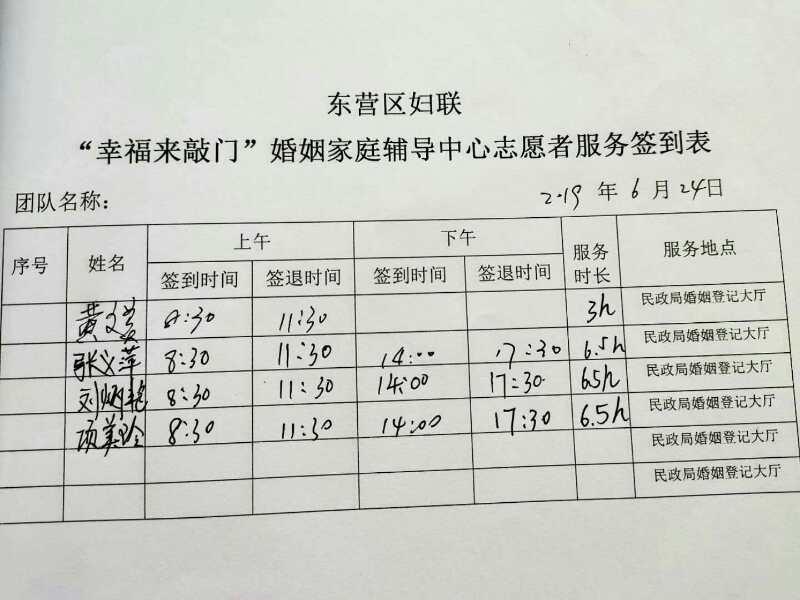 东营区妇联
“幸福来敲门”婚姻家庭辅导中心志愿者服务签到表
团队名称：
2019 年 6 月 24日
序号 姓名 上午 下午 服务时长 服务地点
签到时间 签退时间 签到时间 签退时间
黄 8:30 11:30 3h 民政局婚姻登记大厅
张义萍 8:30 11:30 14:00 17:30 6.5h 民政局婚姻登记大厅
刘炳艳 8:30 11:30 14:00 17:30 65h 民政局婚姻登记大厅
项美玲 8:30 11:30 14:00 17:30 6.5h 民政局婚姻登记大厅
民政局婚姻登记大厅
民政局婚姻登记大厅